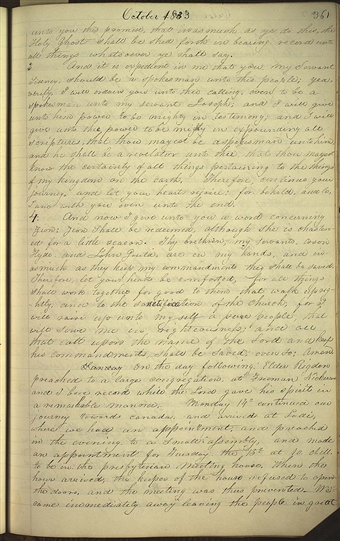 October 1833 361
unto you this promise, that inasmuch as ye do this, the
Holy Ghost shall be shed forth in bearing record unto
all things whatsoever ye shall say.
3 And it is expedient in me that you, my servant
Sidney, should be a spokesman unto this people; yea,
verily, I will ordain you unto this calling, even to be a
spokesman unto my servant Joseph; and I will give
unto him power to be mighty in testimony; and I will
give unto thee power to be mighty in expounding all
scriptures, that thou mayest be a spokesman unto him
and he shall be a revelator unto thee, that thou mayest
know the certainty of all things pertaining to the things
of my kingdom on the earth. Therefore, continue your
journey and let your hearts rejoice; for behold, and lo,
I am with you even unto the end.
4. And now I give unto you a word concerning
Zion: Zion shall be redeemed, although she is chasten
ed for a little season. Thy brethren, my servants, Orson
Hyde and John Gould, are in my hands, and in
asmuch as they keep my commandments they shall be saved.
Therefore, let your hearts be comforted, for all things
shall work together for good to them that walk uprig
htly, and to the sanctification of the church; for I
will raise up unto myself a pure people, that
will serve me in righteousness; and all
that call upon the name of the Lord and keep
his commandments, shall be saved; even so; Amen.
On the day following, Elder Rigdon
preached to a large congregation, at Freeman Nickerson's
and I bore record while the Lord gave his Spirit in
a remarkable manner. Monday 14th continued our
journey towards Canada, and arrived at Lodi,
where we had an appointment, and preached
in the evening to a small assembly, and made
an appointment for Tuesday the 15th at 10 o'clk.
to be in the presbyterian meeting house. When the
hour arrived, the keeper of the house refused to open
the doors, and the meeting was thus prevented. We
came immediately away leaving the people in great